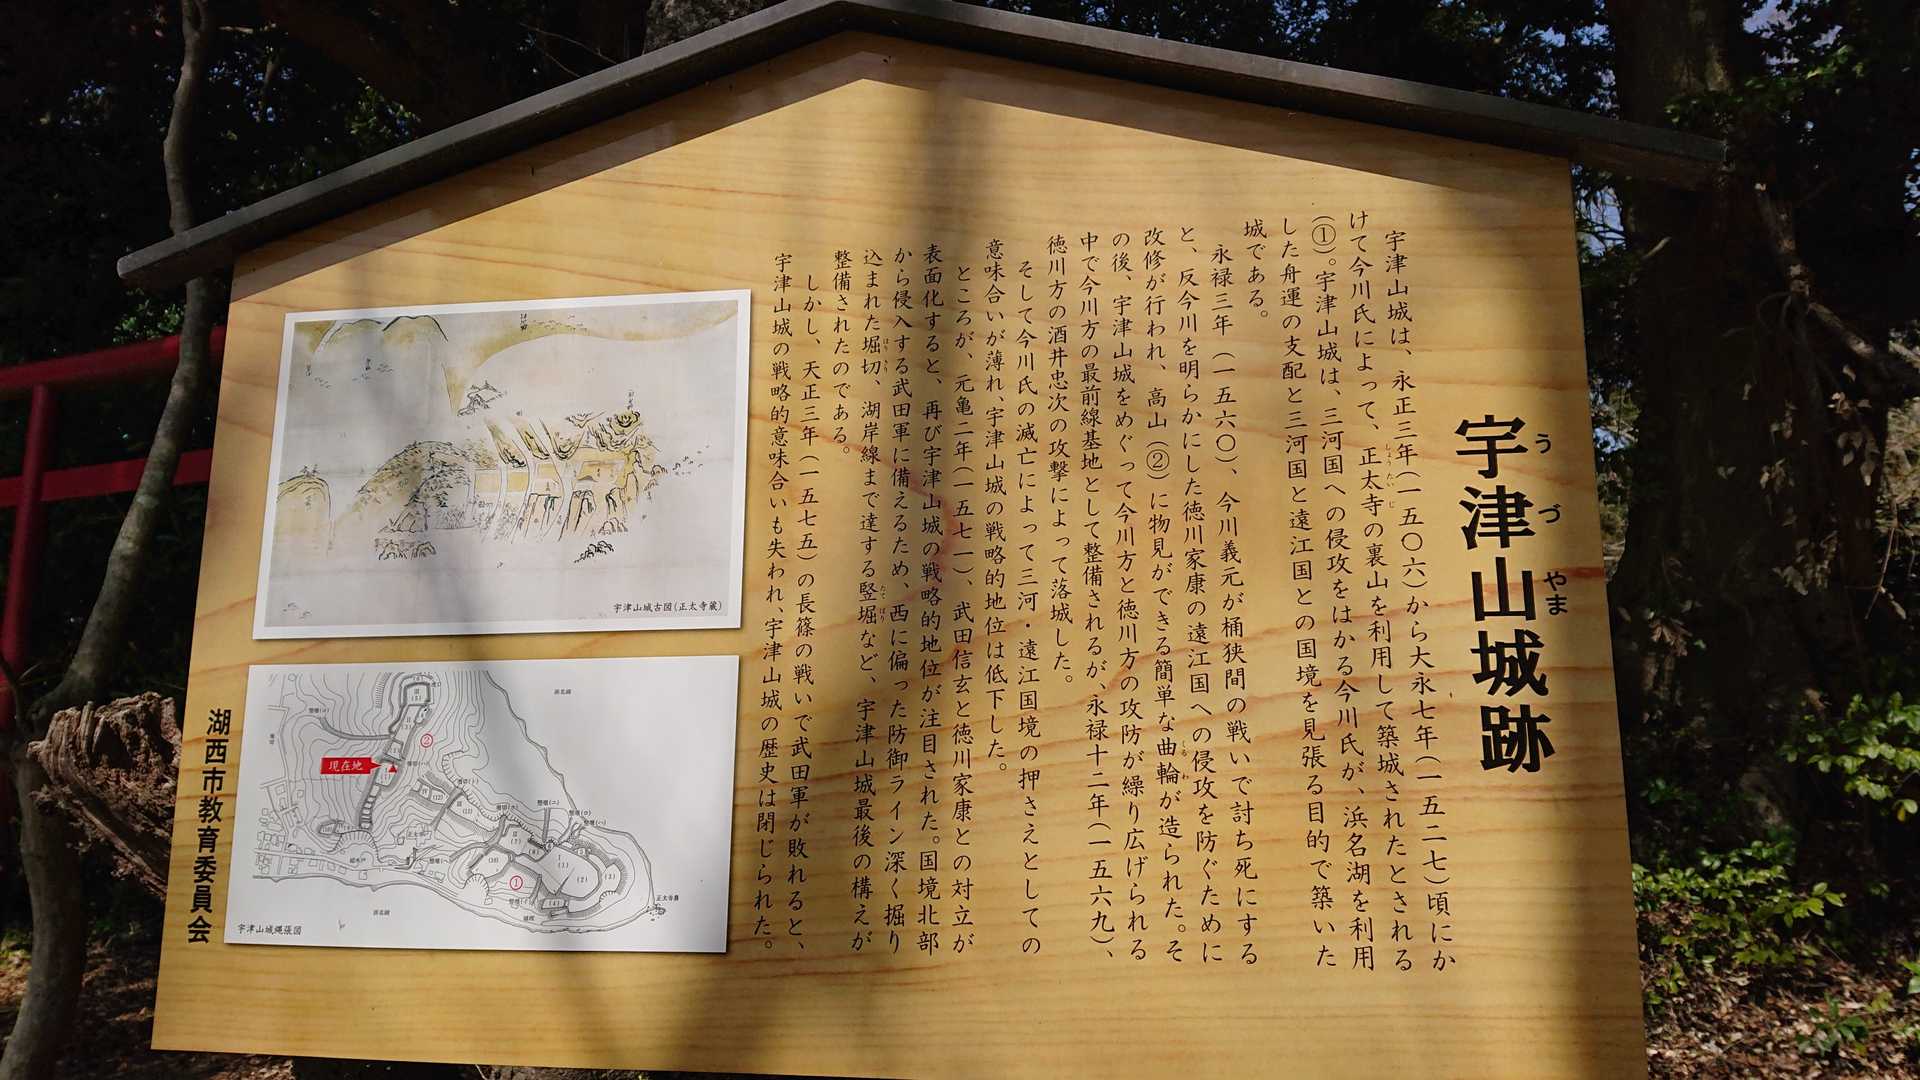 宇津山城跡
うづやま
宇津山城は、永正三年(一五〇六)から大永七年(一五二七)頃にか
けて今川氏によって、正太寺の裏山を利用して築城されたとされる
しょうたいじ
(①)。宇津山城は、三河国への侵攻をはかる今川氏が、浜名湖を利用
した舟運の支配と三河国と遠江国との国境を見張る目的で築いた
城である。
永禄三年(一五六〇)、今川義元が桶狭間の戦いで討ち死にする
と、反今川を明らかにした徳川家康の遠江国への侵攻を防ぐために
改修が行われ、高山(②)に物見ができる簡単な曲輪が造られた。そ
くるわ
の後、宇津山城をめぐって今川方と徳川方の攻防が繰り広げられる
中で今川方の最前線基地として整備されるが、永禄十二年(一五六九)、
徳川方の酒井忠次の攻撃によって落城した。
そして今川氏の滅亡によって三河・遠江国境の押さえとしての
意味合いが薄れ、宇津山城の戦略的地位は低下した。
ところが、元亀二年(一五七一)、武田信玄と徳川家康との対立が
表面化すると、再び宇津山城の戦略的地位が注目された。国境北部
から侵入する武田軍に備えるため、西に偏った防御ライン深く掘り
込まれた堀切、湖岸線まで達する竪堀など、宇津山城最後の構えが
ほりきり
たてぼり
整備されたのである。
しかし、天正三年(一五七五)の長篠の戦いで武田軍が敗れると、
宇津山城の戦略的意味合いも失われ、宇津山城の歴史は閉じられた。
宇津山城古図(正太寺蔵)
現在地
②
①
浜名湖
浜名湖
正太寺鼻
宇津山城縄張図
湖西市教育委員会